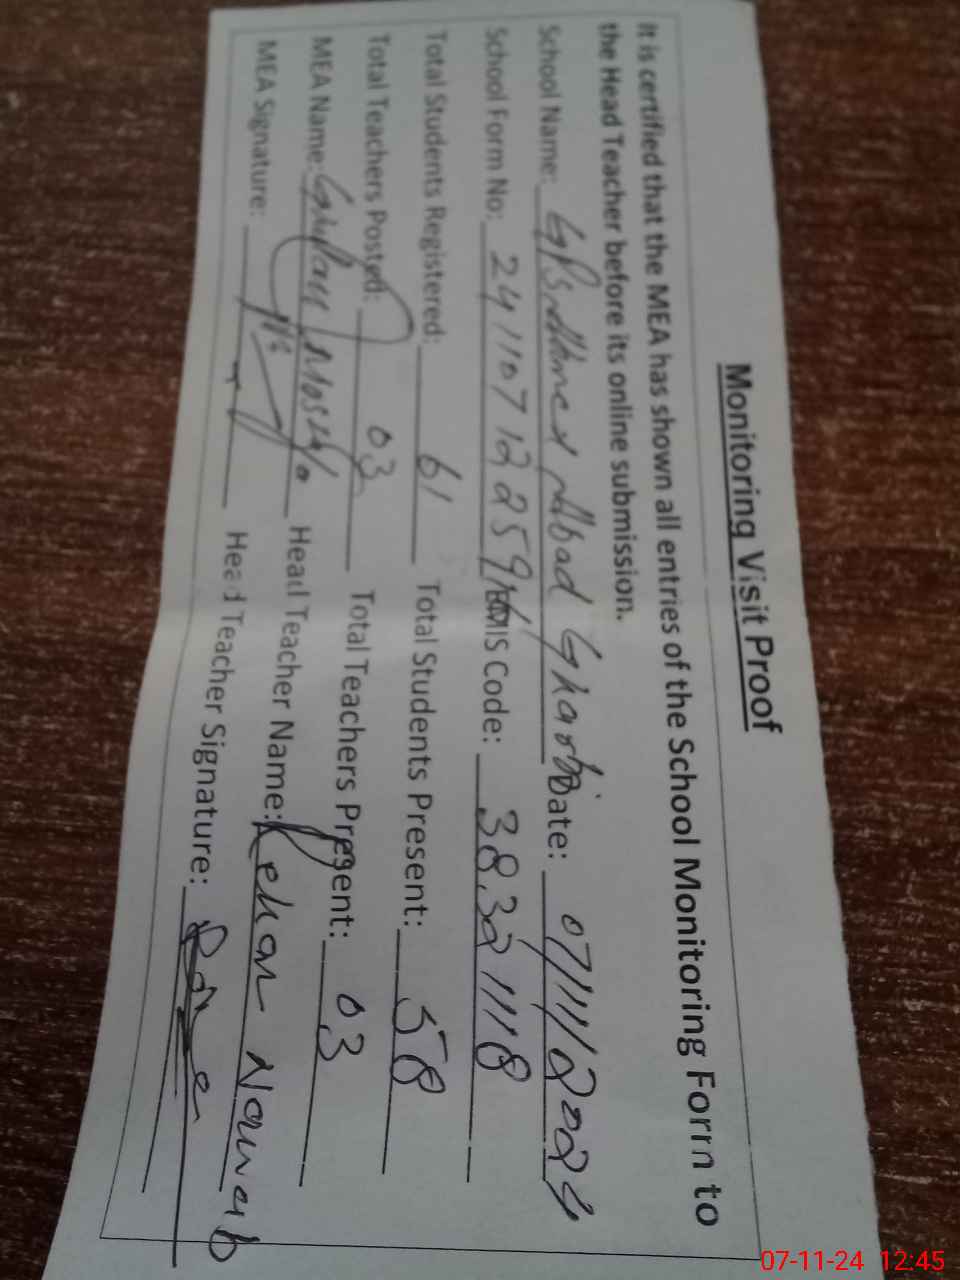 Monitoring Visit Proof
It is certified that the MEA has shown all entries of the School Monitoring Form to
the Head Teacher before its online submission.
School Name: GPS Ahmed Abad Gharbi Date: 07/11/2024
School Form No: EMIS Code: 38321118
Total Students Registered: 61 Total Students Present: 58
Total Teachers Posted: 03 Total Teachers Present: 03
MEA Name: Head Teacher Name: Rehan Nawab
MEA Signature: Head Teacher Signature:
07-11-24 12:45